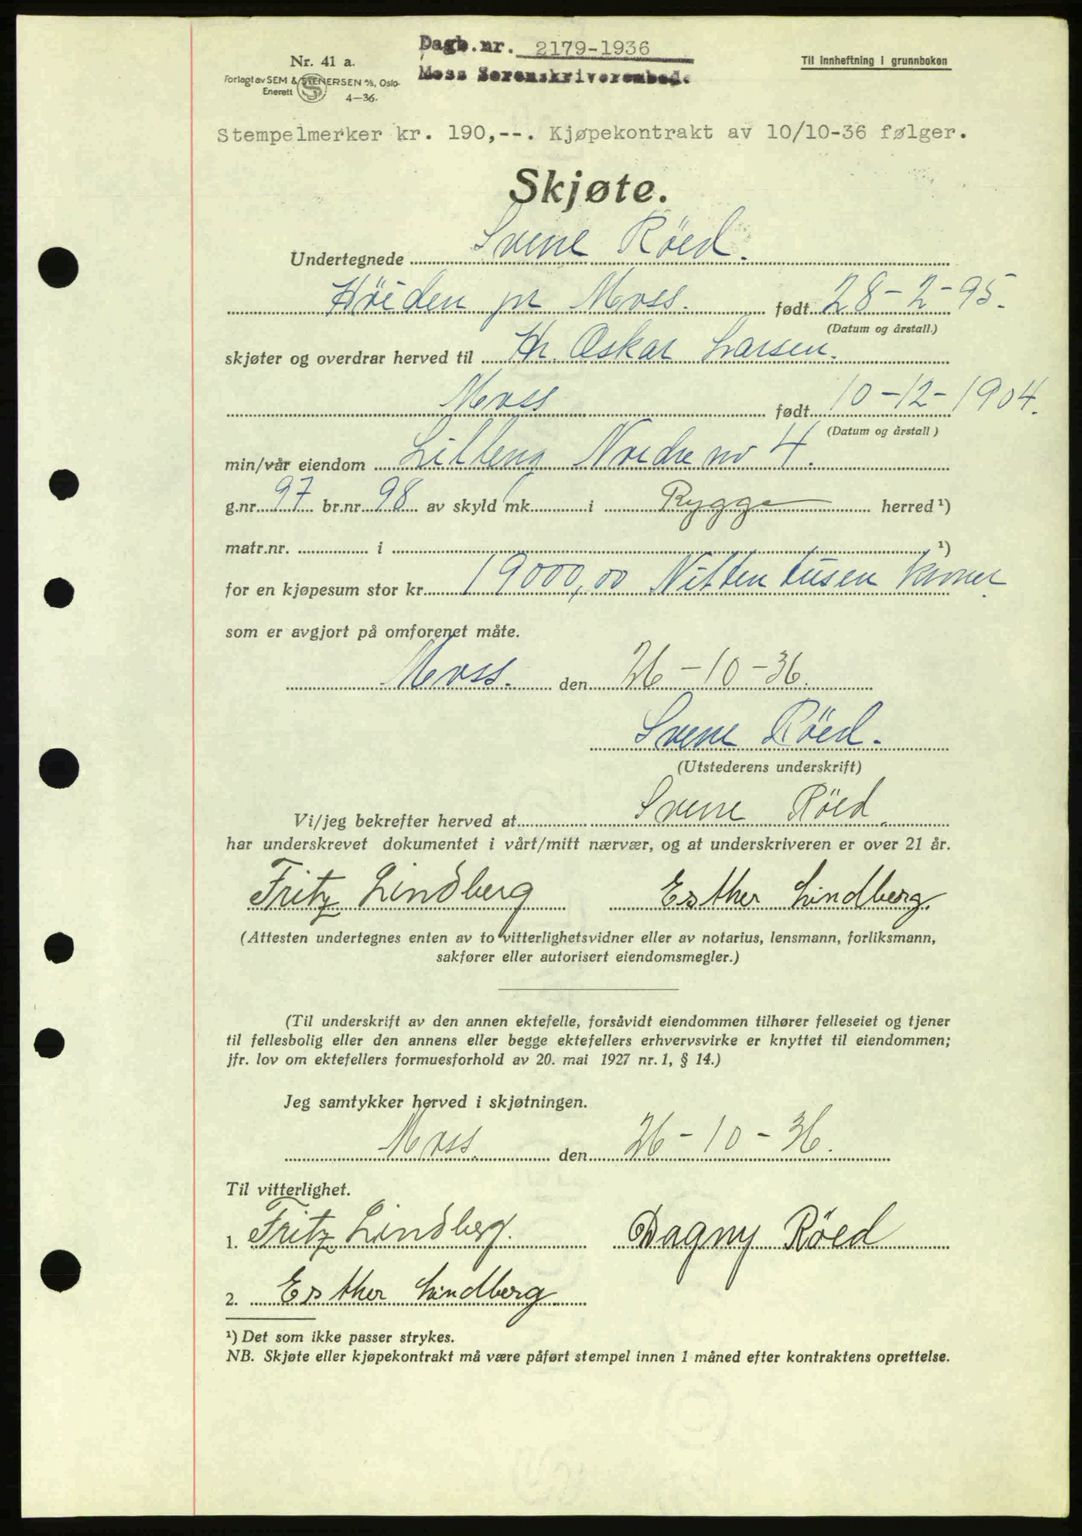 Dagb.nr. 2179-1936
Moss Sorenskriverembede
Nr. 41 a.
Til innheftning i grunnboken
Forlagt av SEM & STENERSEN A/S, Oslo
Enerett S 4-36.
Stempelmerker kr. 190,--. Kjøpekontrakt av 10/10-36 følger.
Skjøte.
Undertegnede Svene Röed.
Höiden pr Moss. født 28-2-95.
(Datum og årstall.)
skjøter og overdrar herved til Hr. Oskar Larsen.
Moss født 10-12-1904.
(Datum og årstall)
min/vår eiendom Lilleng Nordre no 4.
g.nr. 97 br.nr. 98 av skyld mk. i Rygge herred ¹)
matr.nr. i ¹)
for en kjøpesum stor kr. 19000,00 Nitten tusen kroner
som er avgjort på omforenet måte.
Moss. den 26-10-36.
Svene Röed.
(Utstederens underskrift)
Vi/jeg bekrefter herved at Svene Röed.
har underskrevet dokumentet i vårt/mitt nærvær, og at underskriveren er over 21 år.
Fritz Lindberg Esther Lindberg.
(Attesten undertegnes enten av to vitterlighetsvidner eller av notarius, lensmann, forliksmann,
sakfører eller autorisert eiendomsmegler.)
(Til underskrift av den annen ektefelle, forsåvidt eiendommen tilhører felleseiet og tjener
til fellesbolig eller den annens eller begge ektefellers erhvervsvirke er knyttet til eiendommen;
jfr. lov om ektefellers formuesforhold av 20. mai 1927 nr. 1, § 14.)
Jeg samtykker herved i skjøtningen.
Moss. den 26-10-36.
Til vitterlighet.
1. Fritz Lindberg. Dagny Röed
2. Esther Lindberg
¹) Det som ikke passer strykes.
NB. Skjøte eller kjøpekontrakt må være påført stempel innen 1 måned efter kontraktens oprettelse.